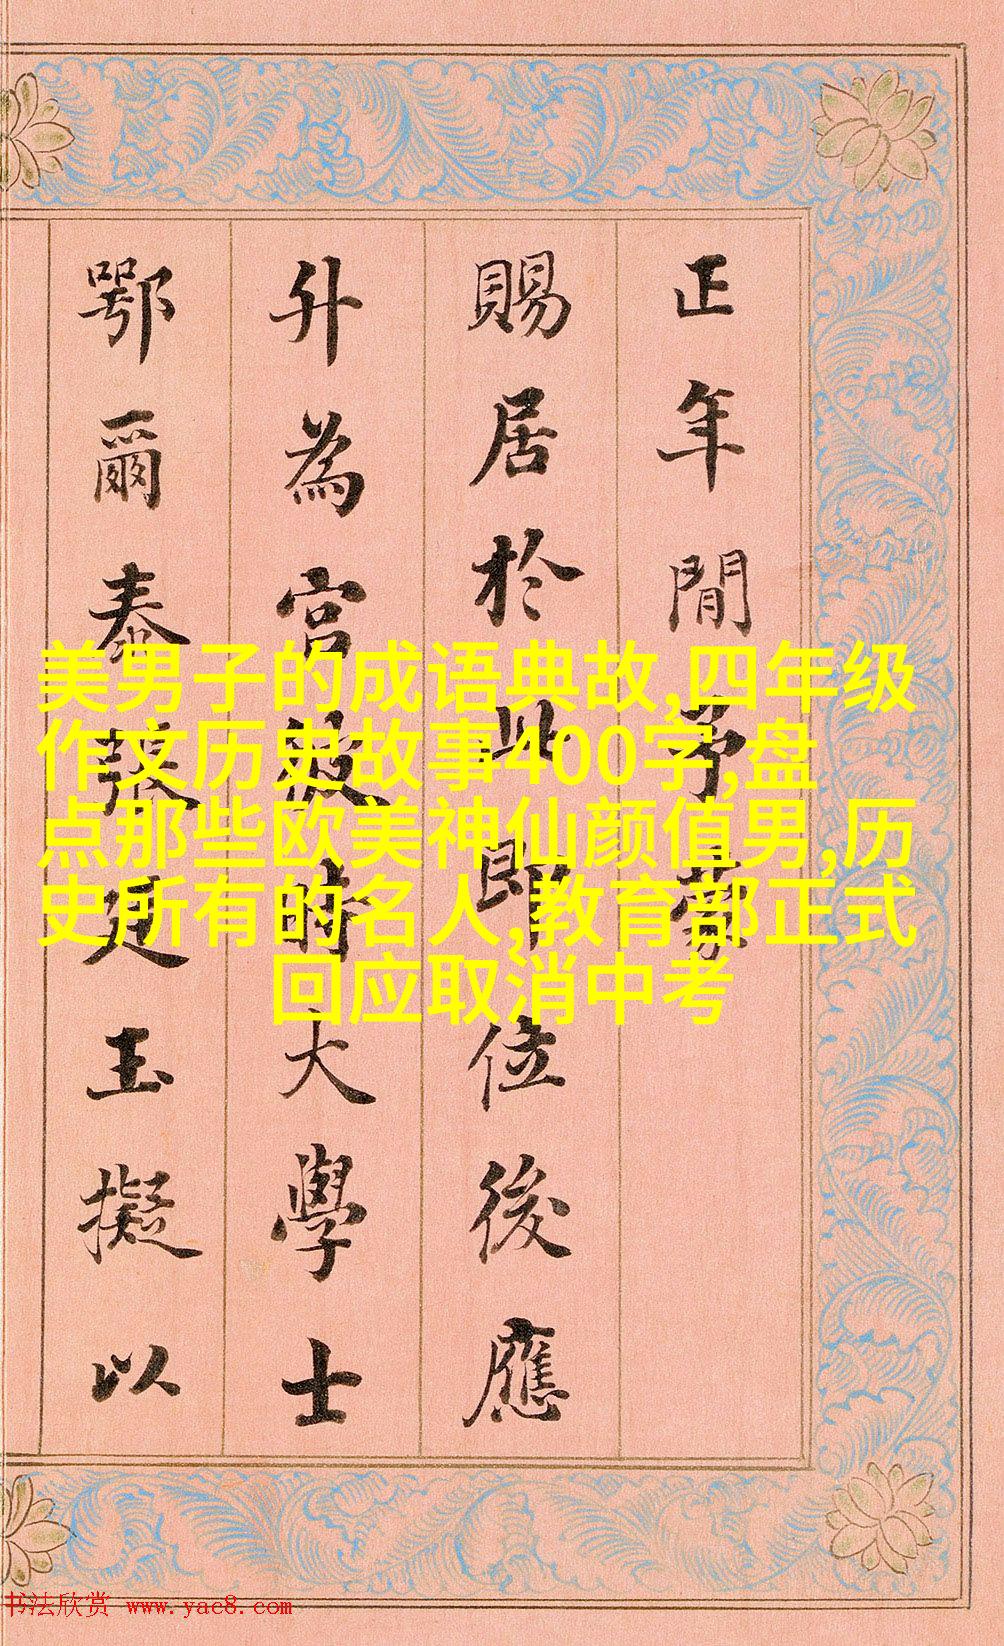 正年間予蒙
賜居於此即位後應
升為宮彼時大學士
鄂爾泰張廷玉擬以
美男子的成语典故,四年级
作文历史故事400字,盘
点那些欧美神仙颜值男,历
史所有的名人,教育部正式
回应取消中考
书法欣赏 www.yac8.com